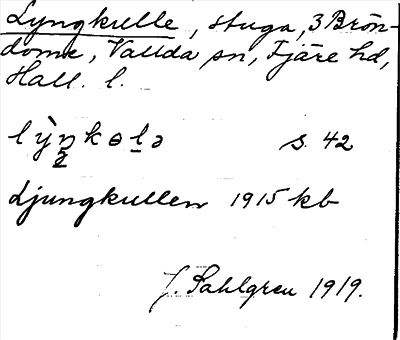 Lyngkulle, stuga, 3 Brön-
domme, Vallda sn, Fjäre hd,
Hall. l.
lỳŋkɵlə s. 42
Ljungkullen 1915 kb
J. Sahlgren 1919.